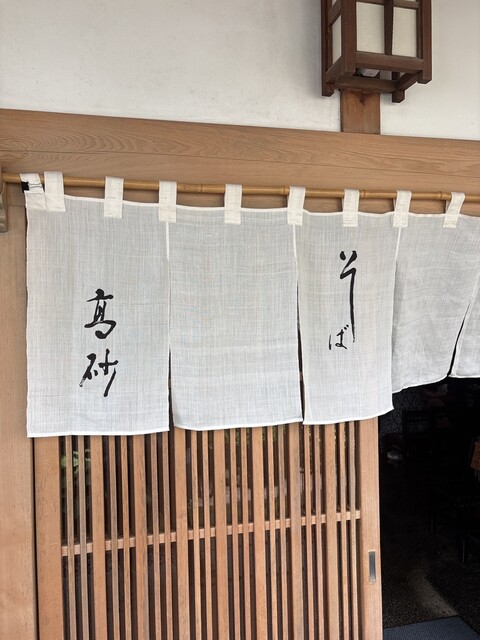 そば
髙砂